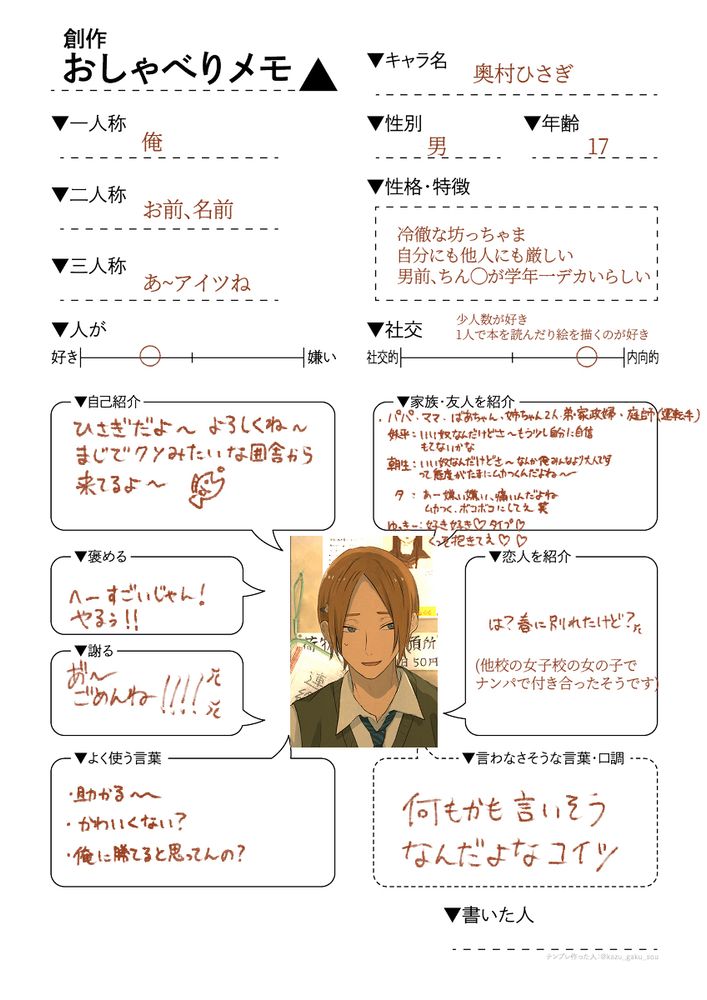 創作
おしゃべりメモ
▼キャラ名
奥村ひさぎ
▼一人称
俺
▼性別
男
▼年齢
17
▼二人称
お前、名前
▼性格・特徴
冷徹な坊っちゃま
自分にも他人にも厳しい
男前、ちん◯が学年一デカいらしい
▼三人称
あ~アイツね
▼人が
好き
嫌い
▼社交
少人数が好き
1人で本を読んだり絵を描くのが好き
社交的
内向的
▼自己紹介
ひさぎだよ〜 よろしくね〜
まじでクソみたいな田舎から
来てるよ〜
▼家族・友人を紹介
・パパ・ママ・ばあちゃん、姉ちゃん2人 弟・家政婦・庭師(運転手)
:いい奴なんだけどさ〜もう少し自分に自信
もてないかな
朝生:いい奴なんだけどさ〜なんか俺みんなより大人です
って態度がたまにムカつくんだよね〜
夕:あー嫌い嫌い、痛いんだよね
ムカつく、ボコボコにしてえ 笑
ゆっきー:好き好き♡タイプ♡
くっそ抱きてえ♡♡
▼褒める
へーすごいじゃん!
やるぅ!!
▼恋人を紹介
は?春に別れたけど?
(他校の女子校の女の子で
ナンパで付き合ったそうです)
▼謝る
お〜
ごめんね!!!!
連
50円
▼よく使う言葉
・助かる〜〜
・かわいくない?
・俺に勝てると思ってんの?
▼言わなさそうな言葉・口調
何もかも言いそう
なんだよなコイツ
▼書いた人
テンプレ作った人:@kazu_gaku_sou